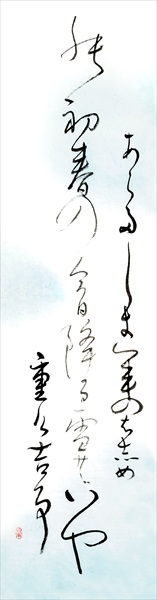 あらたしき年のはしめ
の初春の今日降る雪のいや
重け吉事